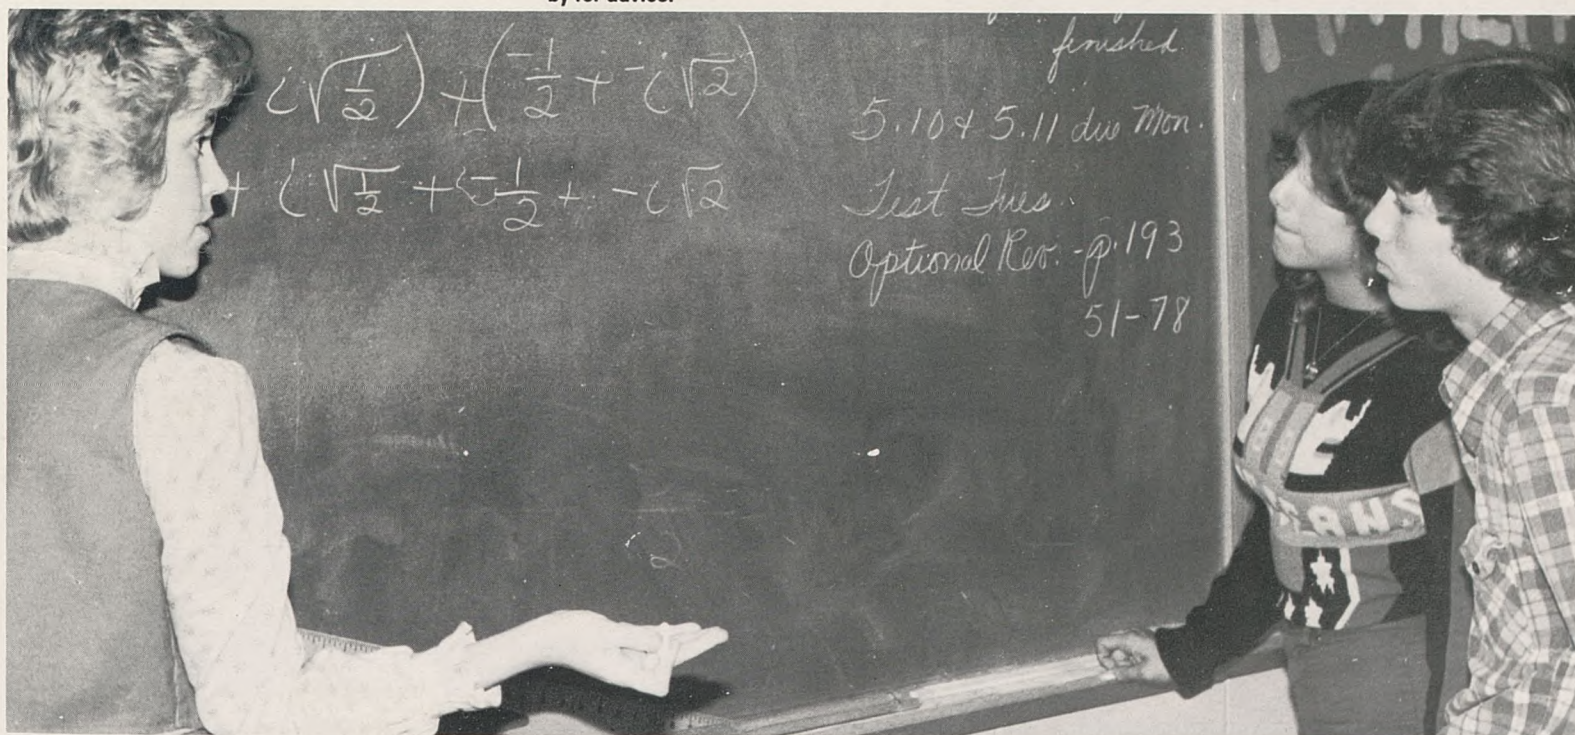 by for advice.
i√(1/2)) + (-1/2 + -i√2)
+ i√(1/2) + (-1/2 + -i√2
finished
5.10 & 5.11 due Mon.
Test Tues.
Optional Rev. - p. 193
51-78